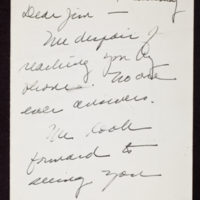 Dear Jim —
We despair of
reaching you by
phone. No one
ever answers.
We look
forward to
seeing you